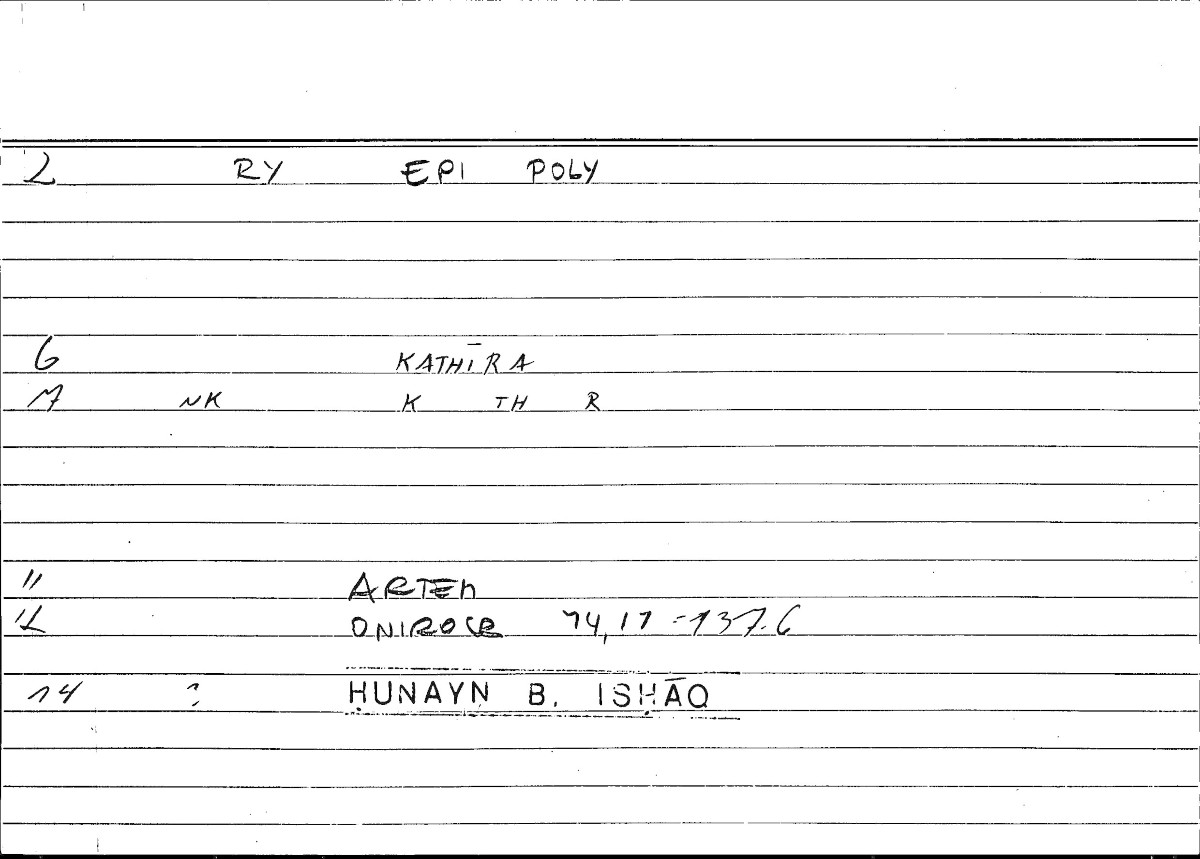 2 RY EPI POLY
6 KATHĪRA
7 NK K TH R
11 ARTEM
12 ONIROCR 74,17 = 137.6
14 ? ḤUNAYN B. ISḤĀQ